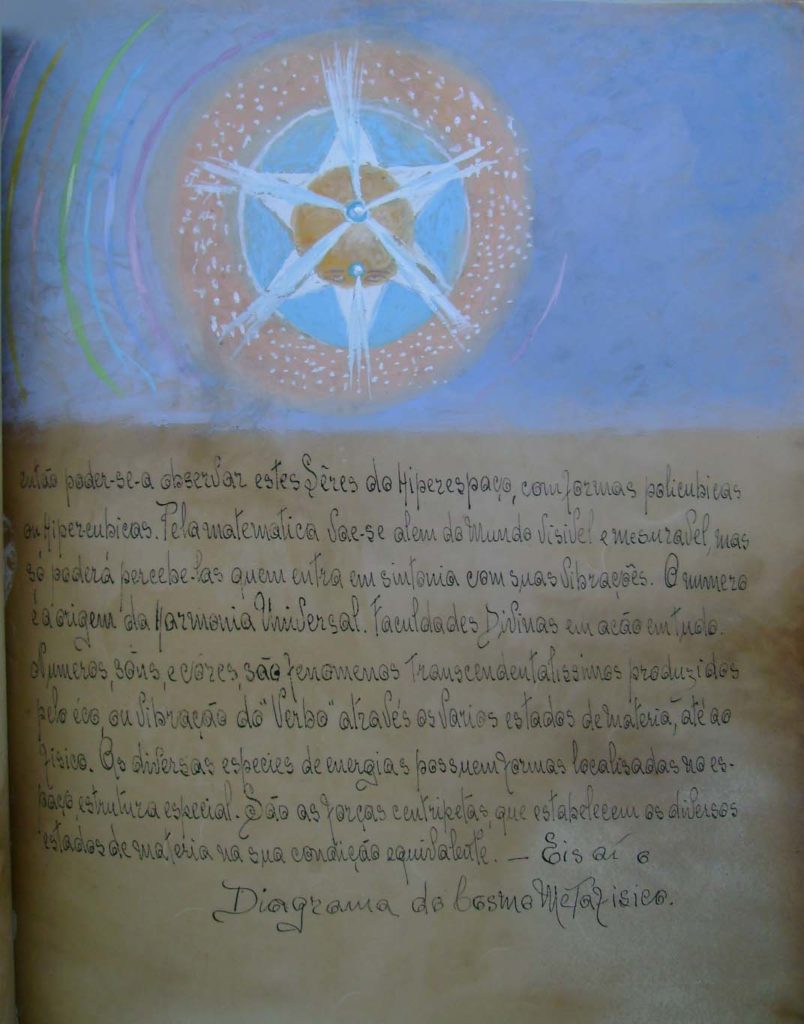 então poder-se-a observar estes Sêres do Hiperespaço, com formas policubicas
ou Hipercubicas. Pela matematica vae-se alem do Mundo Visivel e mesuravel, mas
só poderá percebe-las quem entra em sintonia com suas vibrações. O numero
é a origem da Harmonia Universal. Faculdades Divinas em ação em tudo.
Numeros, sôns, e côres, são fenomenos transcendentalissimos produzidos
pelo éco, ou vibração do "Verbo" através os varios estados de máteria, até ao
fisico. As diversas especies de energias possuem formas localisadas no es-
paço, estrutura especial. São as forças centripetas, que estabelecem os diversos
estados de materia na sua condição equivalente. — Eis aí o
Diagrama do Cosmo Metafisico.